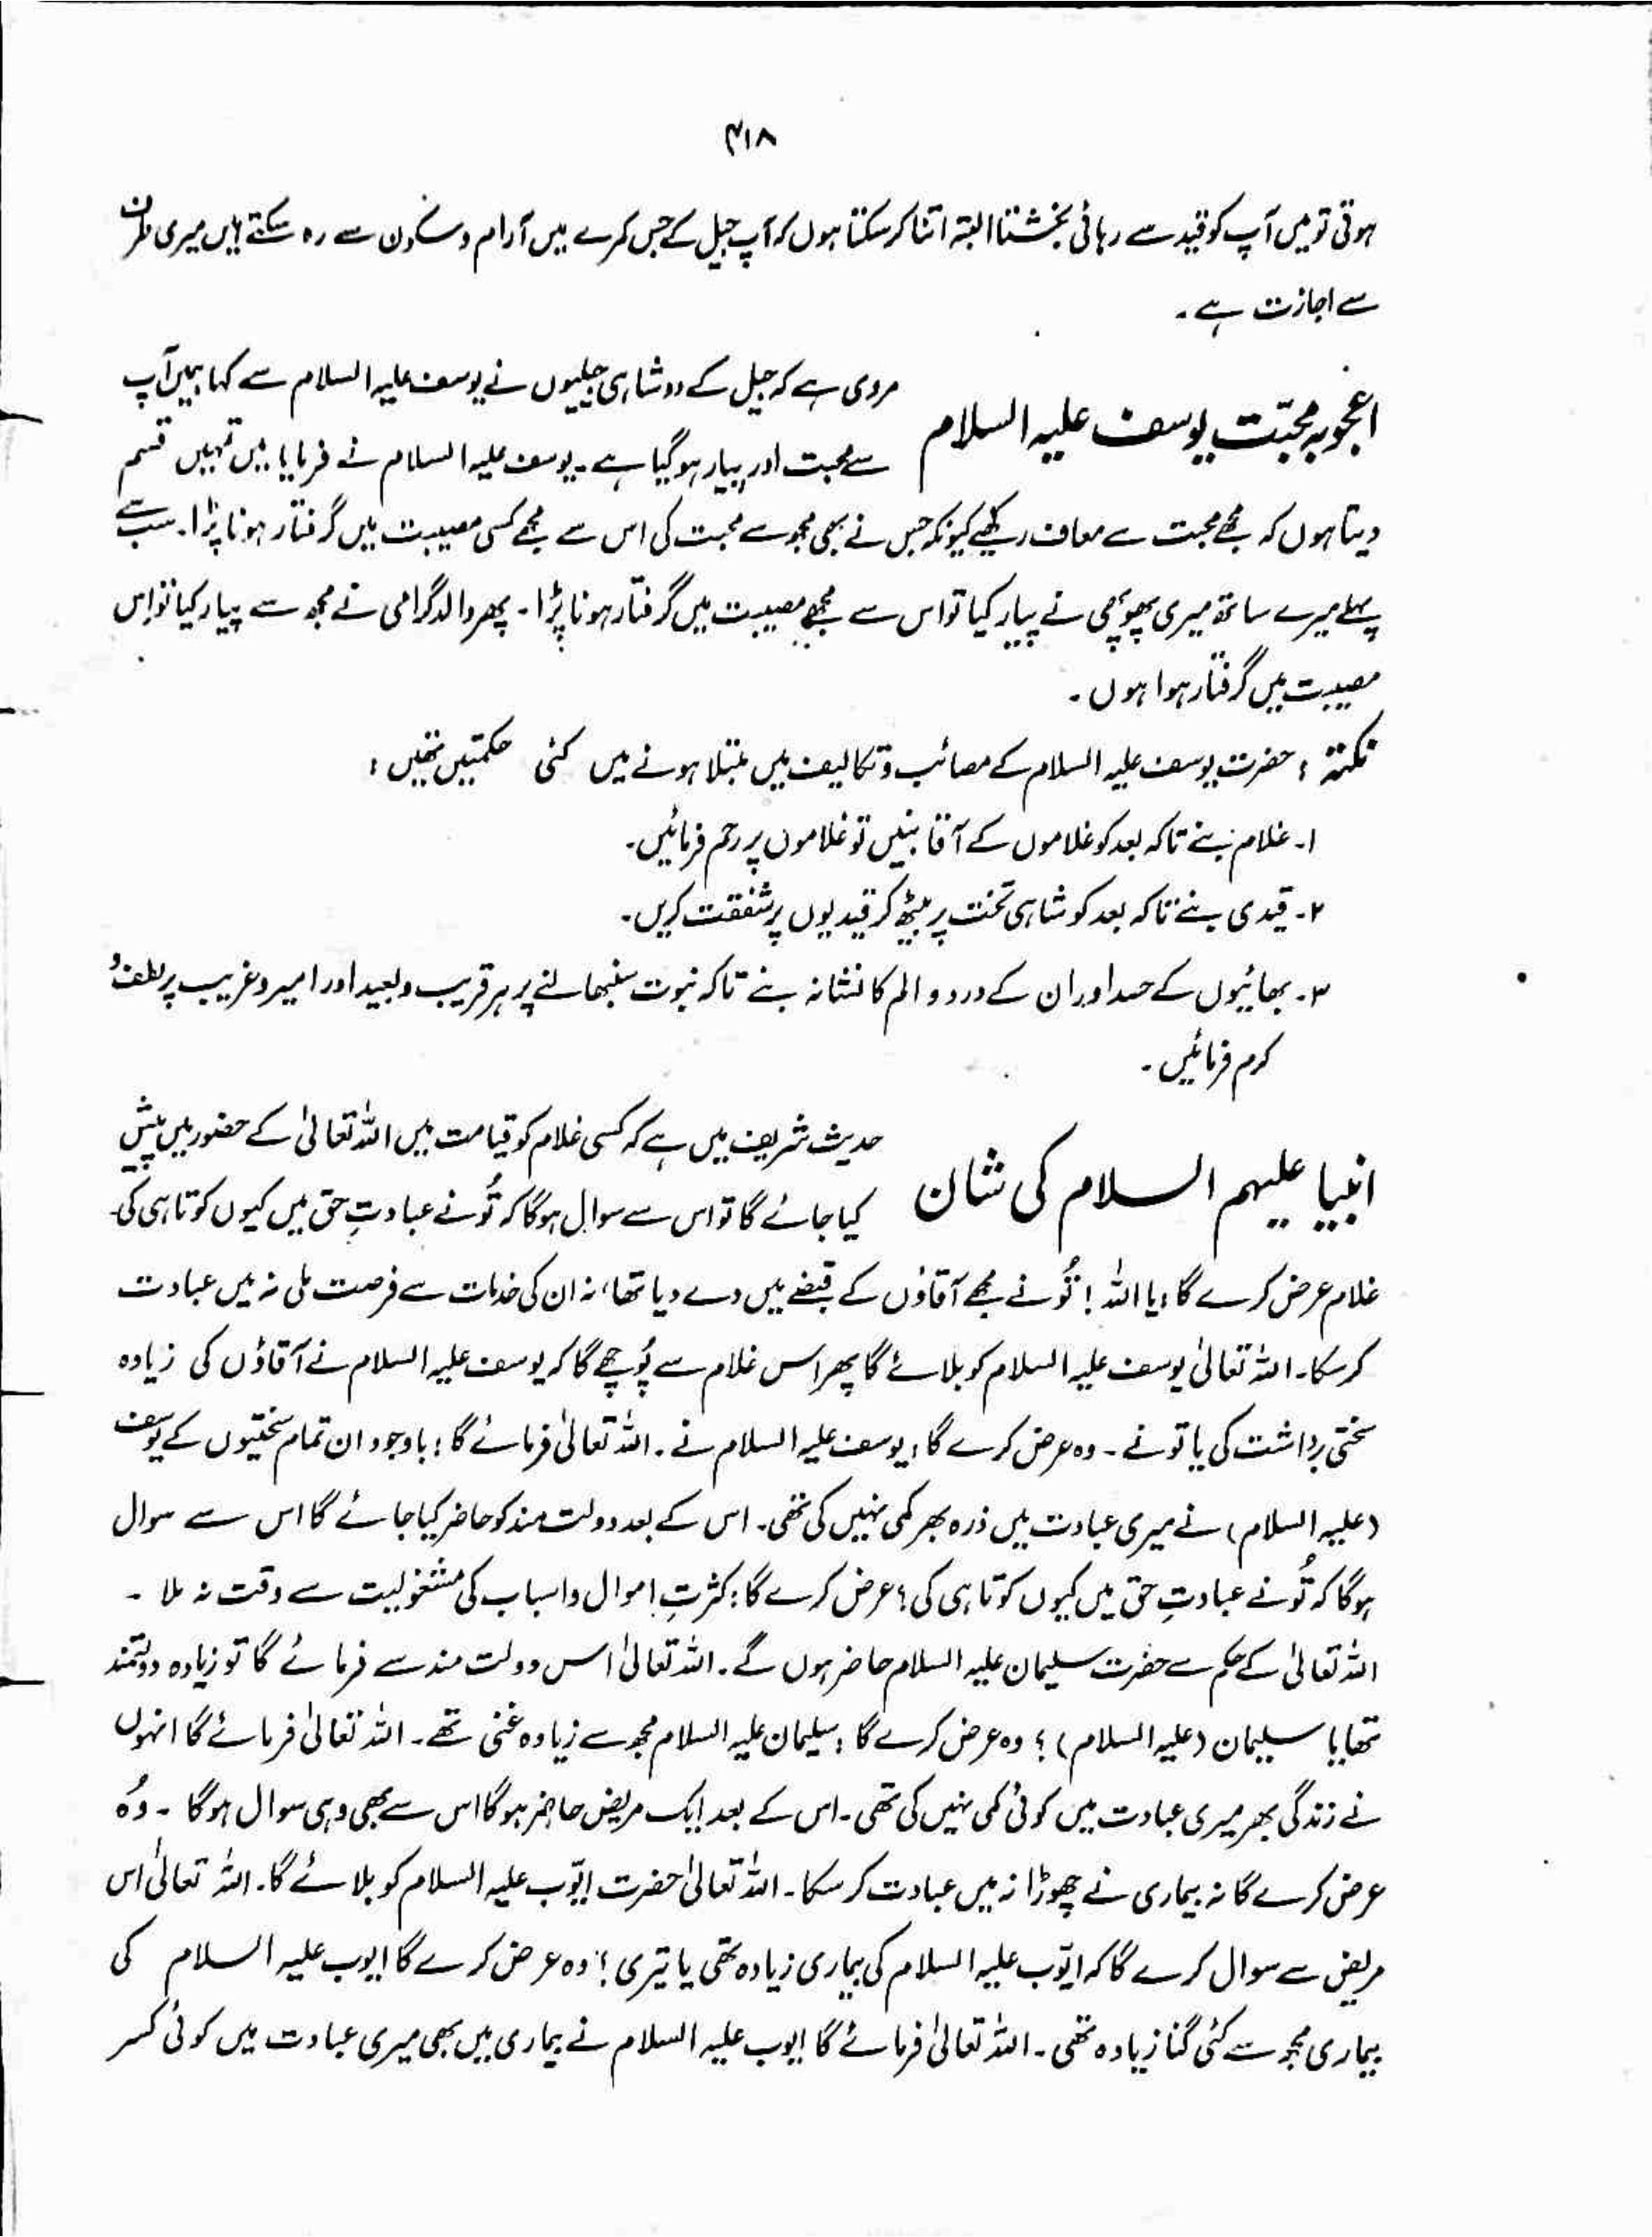 ۴۱۸
ہوتی تو میں آپ کو قید سے رہائی بخشتا البتہ اتنا کر سکتا ہوں کہ آپ جیل کے جس کمرے میں آرام و سکون سے رہ سکتے ہیں میری طرف
سے اجازت ہے۔
اعجوبہ محبّت یوسف علیہ السلام
مروی ہے کہ جیل کے دو شاہی جیلیوں نے یوسف علیہ السلام سے کہا ہمیں آپ
سے محبت اور پیار ہو گیا ہے۔ یوسف علیہ السلام نے فرمایا میں تمہیں قسم
دیتا ہوں کہ مجھے محبت سے معاف رکھیے کیونکہ جس نے بھی مجھ سے محبت کی اس سے مجھے کسی مصیبت میں گرفتار ہونا پڑا۔ سب سے
پہلے میرے ساتھ میری پھوپھی نے پیار کیا تو اس سے مجھے مصیبت میں گرفتار ہونا پڑا۔ پھر والد گرامی نے مجھ سے پیار کیا تو اس
مصیبت میں گرفتار ہوا ہوں۔
نکتہ : حضرت یوسف علیہ السلام کے مصائب و تکالیف میں مبتلا ہونے میں کئی حکمتیں تھیں :
۱۔ غلام بنے تاکہ بعد کو غلاموں کے آقا بنیں تو غلاموں پر رحم فرمائیں۔
۲۔ قیدی بنے تاکہ بعد کو شاہی تخت پر بیٹھ کر قیدیوں پر شفقت کریں۔
۳۔ بھائیوں کے حسد اور ان کے درد و الم کا نشانہ بنے تاکہ نبوت سنبھالنے پر ہر قریب و بعید اور امیر و غریب پر لطف و
کرم فرمائیں۔
انبیا علیہم السلام کی شان
حدیث شریف میں ہے کہ کسی غلام کو قیامت میں اللہ تعالیٰ کے حضور میں پیش
کیا جائے گا تو اس سے سوال ہوگا کہ تُو نے عبادتِ حق میں کیوں کوتاہی کی۔
غلام عرض کرے گا : یا اللہ ! تُو نے مجھے آقاؤں کے قبضے میں دے دیا تھا، نہ ان کی خدمات سے فرصت ملی نہ میں عبادت
کر سکا۔ اللہ تعالیٰ یوسف علیہ السلام کو بلائے گا پھر اس غلام سے پُوچھے گا کہ یوسف علیہ السلام نے آقاؤں کی زیادہ
سختی برداشت کی یا تو نے۔ وہ عرض کرے گا : یوسف علیہ السلام نے۔ اللہ تعالیٰ فرمائے گا : باوجود ان تمام سختیوں کے یوسف
(علیہ السلام) نے میری عبادت میں ذرہ بھر کمی نہیں کی تھی۔ اس کے بعد دولت مند کو حاضر کیا جائے گا اس سے سوال
ہوگا کہ تُو نے عبادتِ حق میں کیوں کوتاہی کی؟ عرض کرے گا : کثرتِ اموال و اسباب کی مشغولیت سے وقت نہ ملا ۔
اللہ تعالیٰ کے حکم سے حضرت سلیمان علیہ السلام حاضر ہوں گے۔ اللہ تعالیٰ اس دولت مند سے فرمائے گا تو زیادہ دولتمند
تھا یا سلیمان (علیہ السلام) ؟ وہ عرض کرے گا : سلیمان علیہ السلام مجھ سے زیادہ غنی تھے۔ اللہ تعالیٰ فرمائے گا انہوں
نے زندگی بھر میری عبادت میں کوئی کمی نہیں کی تھی۔ اس کے بعد ایک مریض حاضر ہوگا اس سے بھی وہی سوال ہوگا ۔ وُہ
عرض کرے گا نہ بیماری نے چھوڑا نہ میں عبادت کر سکا۔ اللہ تعالیٰ حضرت ایّوب علیہ السلام کو بلائے گا۔ اللہ تعالیٰ اس
مریض سے سوال کرے گا کہ ایّوب علیہ السلام کی بیماری زیادہ تھی یا تیری؟ وہ عرض کرے گا ایوب علیہ السلام کی
بیماری مجھ سے کئی گنا زیادہ تھی۔ اللہ تعالیٰ فرمائے گا ایوب علیہ السلام نے بیماری میں بھی میری عبادت میں کوئی کسر